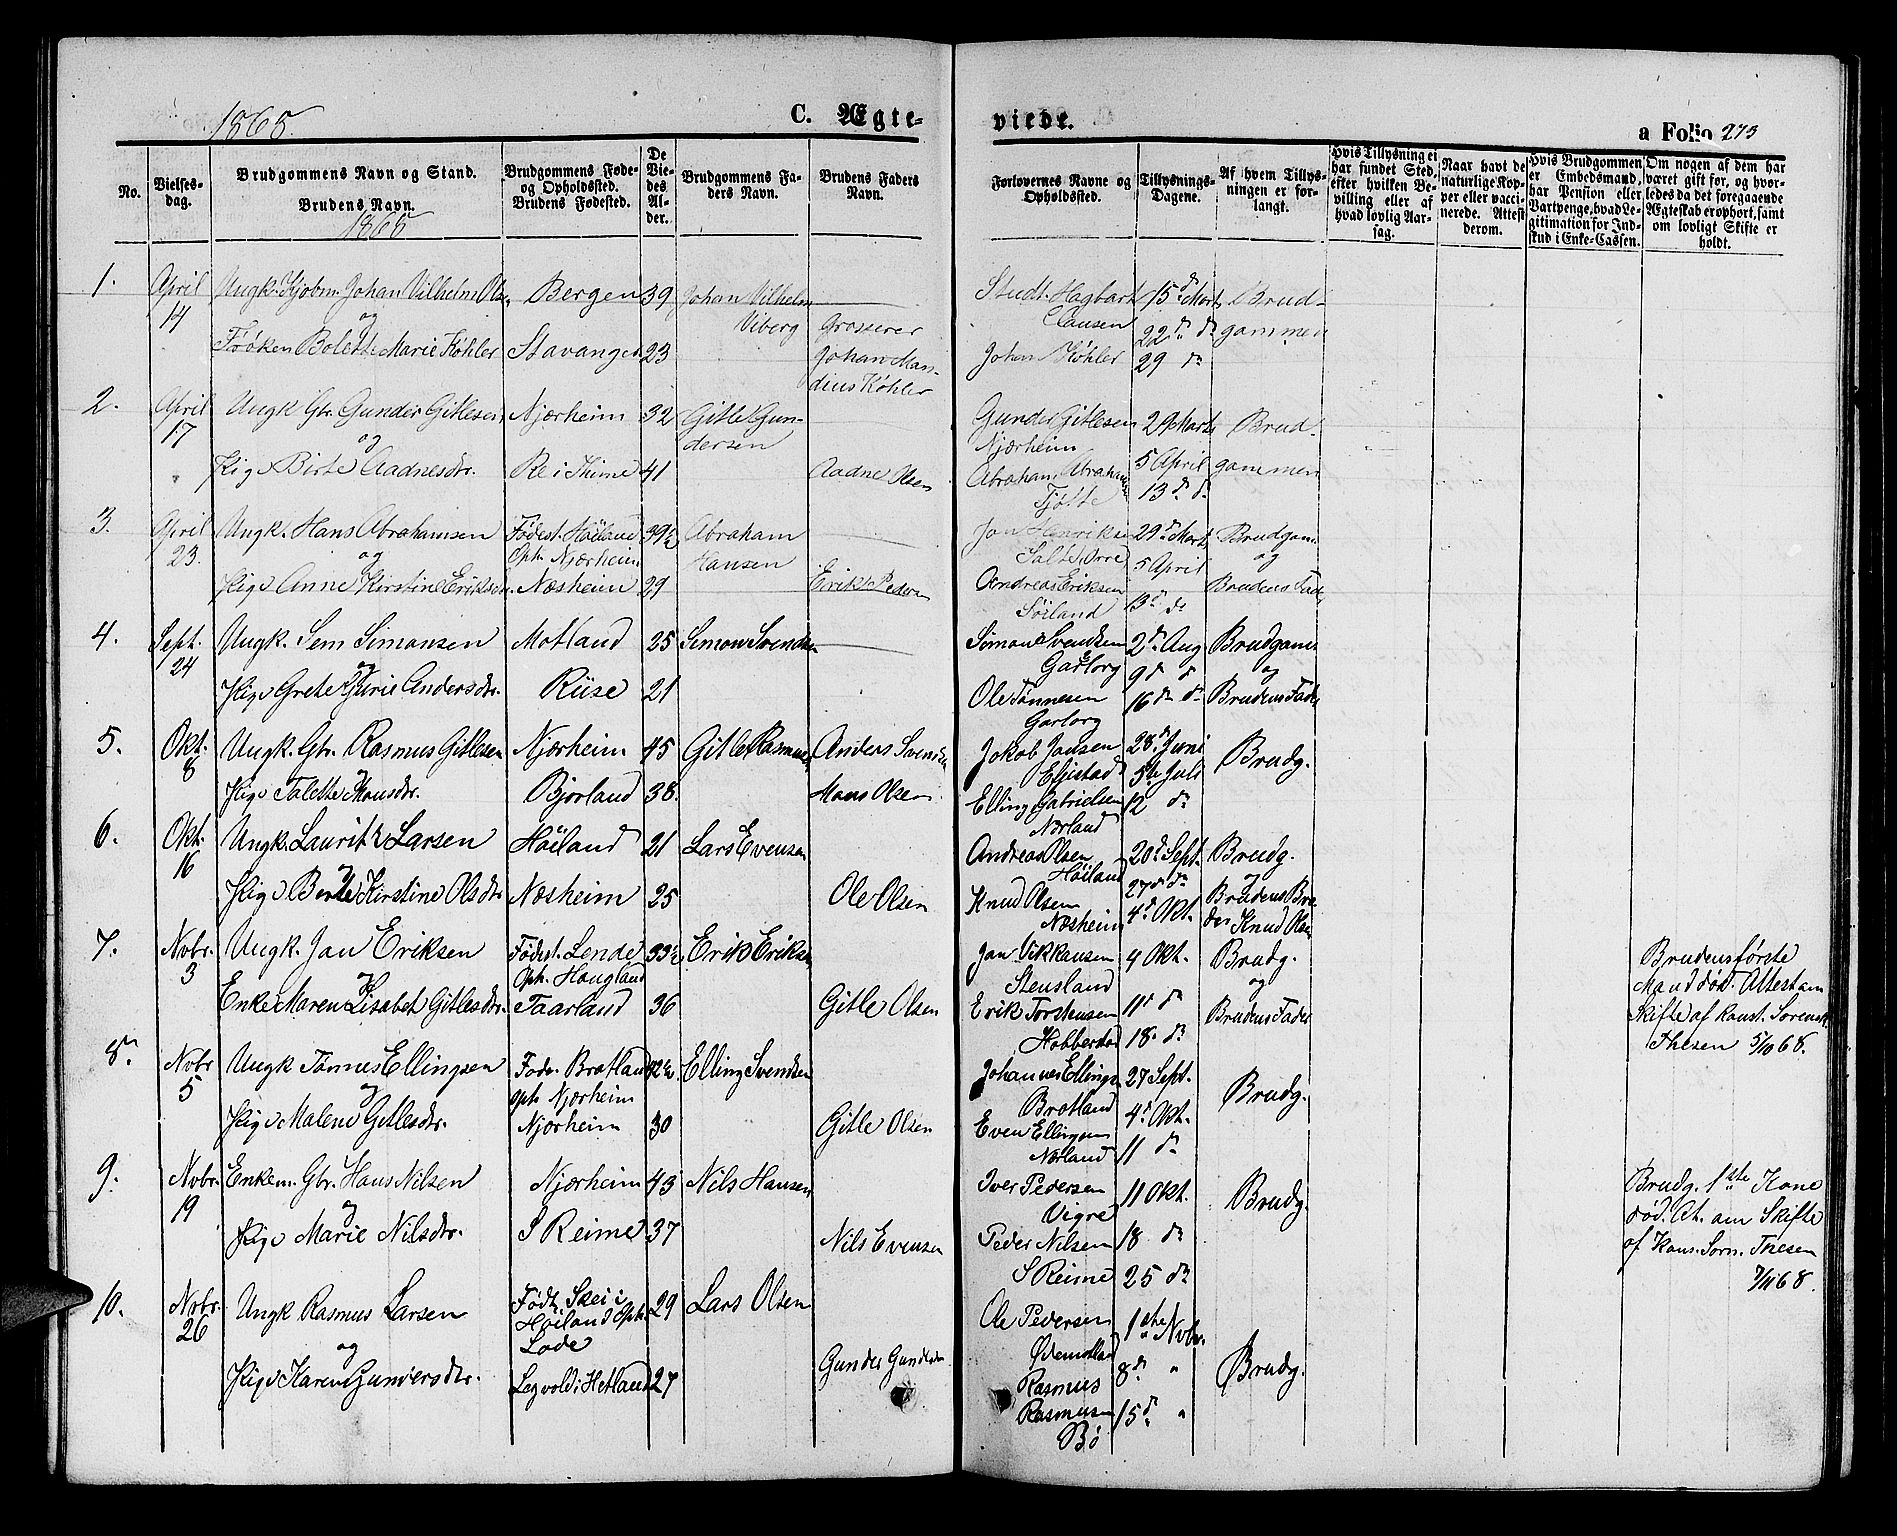 1868
C. Ægte-
viede.
a Folio 273
No.
Vielses-
dag.
Brudgommens Navn og Stand.
Brudens Navn.
1868
Brudgommens Føde-
og Opholdssted.
Brudens Fødested.
De
Vie-
des
Al-
der.
Brudgommens Fa-
ders Navn.
Brudens Faders
Navn.
Forlovernes Navne og
Opholdssted.
Tillysnings-
Dagene.
Af hvem Tillys-
ningen er for-
langt.
Hvis Tillysning ei
har fundet Sted,
efter hvilken Be-
villing eller af
hvad lovlig Aar-
sag.
Naar havt de
naturlige Kop-
per eller vacci-
nerede. Attest
derom.
Hvis Brudgommen
er Embedsmand,
har Pension eller
Vartpenge, hvad Le-
gitimation for Ind-
skud i Enke-Cassen.
Om nogen af dem har
været gift før, og hvor-
ledes da det foregaaende
Ægteskab er ophørt, samt
om lovligt Skifte er
holdt.
1. April 14
Ungk. Kjøbm. Johan Vilhelm Ols.
og
Frøken Bolette Marie Køhler
Bergen 39
Stavanger 23
Johan Vilhelm
Viberg
Grosserer
Johan Man-
dius Køhler
Studt. Hagbart
Clausen
Johan Køhler
15de Marts
22de do
29 do
Brud-
gommen
2. April 17
Ungk. Gbr. Gunder Gitlesen
og
Pige Birte Aadnesdtr.
Njærheim 32
Re i Thime 41
Gitle Gun-
dersen
Aadne Olsen
Gunder Gitlesen
Njærheim
Abraham Abraham
Tjøtte
29 Marts
5 April
13de do
Brud-
gommen
3. April 23.
Ungk. Hans Abrahamsen
og
Pige Anne Kirstine Eriksdtr.
Fødest. Høiland
Oph. Njærheim
39½
Næsheim 29
Abraham
Hansen
Erik Peders
Jan Henriksen
Salte Orre
Andreas Eriksen
Søiland
29de Marts
5 April
13de do
Brudgom
og
Brudens Fader
4. Sept. 24
Ungk. Sem Simonsen
og
Pige Grete Gurie Andersdtr.
Motland 25
Riise 21
Simon Svendsen
Simon Svendsen
Garborg
Ole Tønnesen
Garborg
2de Aug
9de do
16de do
Brudgom
og
Brudens Fader
5. Okt. 8
Ungk. Gbr. Rasmus Gitlesen
Pige Talette Monsdtr.
Njærheim 45
Bjorland 38.
Gitle Rasmus
Anders Svends
Mons Olsen
Jakob Jansen
Eljestad
Elling Gabrielsen
Nærland
28de Juni
5te Juli
12 do
Brudg.
6. Okt. 16
Ungk. Lauritz Larsen
og
Pige Berte Kirstine Olsdtr
Høiland 21
Næsheim 25
Lars Evensen
Ole Olsen
Andreas Olsen
Høiland
Knud Olsen
Næsheim
20de Sept.
27de do
4de Okt.
Brudg.
og
Brudens Bro-
der Knud Olsen
7. Novbr. 3
Ungk. Jan Eriksen
og
Enke Maren Lisabet Gitlesdtr.
Fødest. Lende
Oph. Haugland
33½
Taarland 36
Erik Eriksen
Gitle Olsen
Jan Vikkansen
Stensland
Erik Torstensen
Hobberstad
4 Okt.
11de do
18. do
Brudg.
og
Brudens Fader
Brudens første
Mand død. Attest om
Skifte af konst. Sorensk.
Thesen 5/10 68.
8. Novbr 5
Ungk Tønnes Ellingsen
og
Pige Malene Gitlesdtr.
Føde. Brotland
oph. Njærheim
42½
Njærheim 30
Elling Svendsen
Gitle Olsen
Johannes Ellings
Brotland
Even Ellingsen
Nærland
27 Sept.
4de Okt.
11 do
Brudg.
9. Novbr. 19
Enkem. Gbr. Hans Nilsen
og
Pige Marie Nilsdtr.
Njærheim 43
S Reime 37
Nils Hansen
Nils Evensen
Iver Pedersen
Vigre
Peder Nilsen
S Reime
11 Okt.
18 do
25 do
Brudg.
Brudg. 1ste Kone
død. At. om Skifte
af Kons. Sorn. Thesen
7/11 68.
10. Novbr. 26
Ungk Rasmus Larsen
og
Pige Karen Gundersdtr.
Født. Skei i
Høiland Oph.
Lode
29
Legvold i Hetland 27
Lars Olsen
Gunder Gunders
Ole Pedersen
Ødemotland
Rasmus
Rasmusen
Bø
1ste Novbr.
8de "
15de "
Brudg.